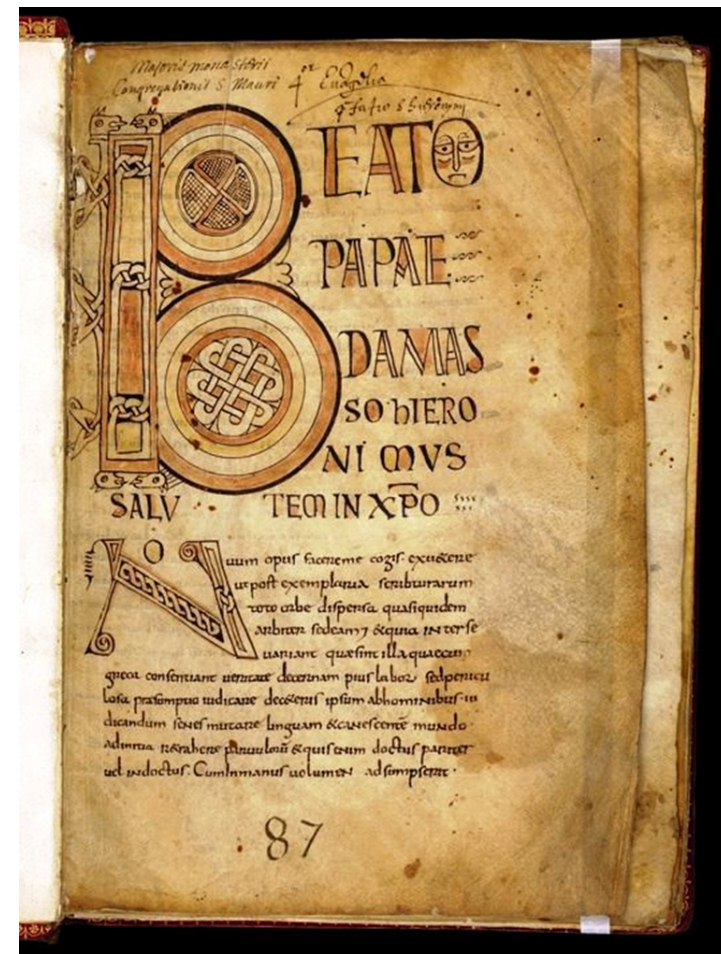 Majoris monasterii
Congregationis S. Mauri 4or Evãgelia
BEATO
PAPAE
DAMAS
SO hIERO
NI MVS
SALV TEM IN XP̄O
NOuum opus facere me cogis exuetere
ut post exemplaria scribturarum
toto orbe dispersa quasi quidem
arbiter sedeam 7 &quia INter se
uariant quae sint illa quae cum
greca consentiant ueritate decernam pius labor sed pericu
losa praesumptio iudicare de ceteris ipsum ab hominibus iu
dicandum senis mutare linguam &canescentē mundo
ad initia retrahere paruulorū &quis enim doctus pariter
uel indoctus. Cum IN manus uolumeN adsumpserit
87